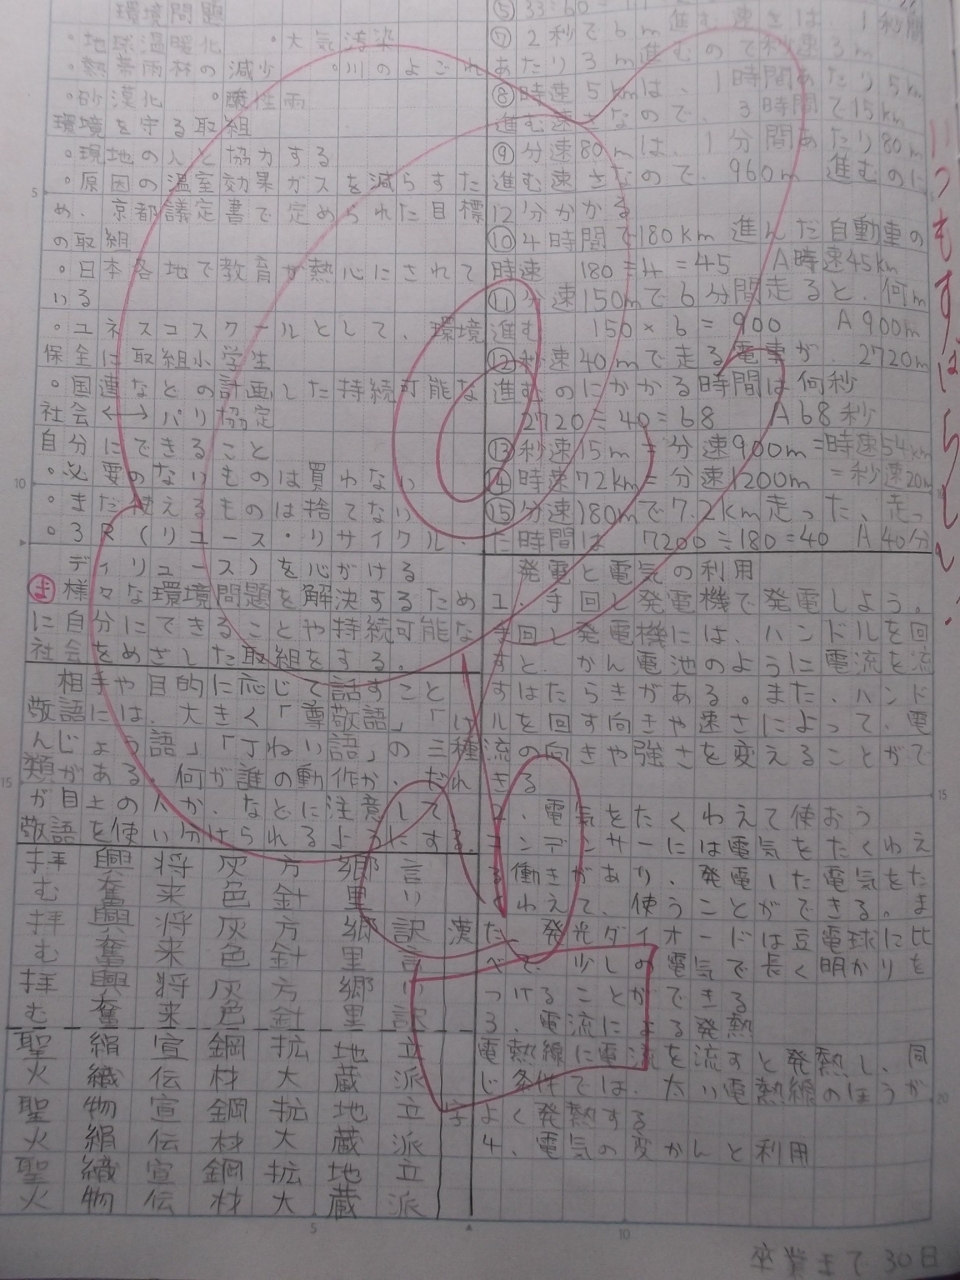 環境問題
・地球温暖化 ・大気汚染
・熱帯雨林の減少 ・川のよごれ
・砂漠化 ・酸性雨
環境を守る取組
・現地の人と協力する
・原因の温室効果ガスを減らすた
め、京都議定書で定められた目標
の取組
・日本各地で教育が熱心にされて
いる
・ユネスコスクールとして、環境
保全に取組小学生
・国連などの計画した持続可能な
社会←→パリ協定
自分にできること
・必要のないものは買わない
・まだ使えるものは捨てない
・3R(リユース・リサイクル・
ディリュース)を心がける
ま 様々な環境問題を解決するため
に自分にできることや持続可能な
社会をめざした取組をする。
相手や目的に応じて話すこと
敬語には、大きく「尊敬語」「け
んじょう語」「丁ねい語」の三種
類がある。何が誰の動作か、だれ
が目上の人か、などに注意して
敬語を使い分けられるようにする。
拝 興 将 灰 方 郷 言
む 奮 来 色 針 里 い
拝 興 将 灰 方 郷 訳 漢
む 奮 来 色 針 里 言
拝 興 将 灰 方 郷 い
む 奮 来 色 針 里 訳
聖 絹 宣 鋼 拡 地 立
火 織 伝 材 大 蔵 派
聖 物 宣 鋼 拡 地 立 字
火 絹 伝 材 大 蔵 派
聖 織 宣 鋼 拡 地 立
火 物 伝 材 大 蔵 派
⑤33:60=
⑦2秒で6m進む速さは、1秒間
あたり3m進むので秒速3m
⑧時速5kmは、1時間あたり5km
進む速さなので、3時間で15km
⑨分速80mは、1分間あたり80m
進む速さなので、960m進むのに
12分かかる
⑩4時間で180km進んだ自動車の
時速 180÷4=45 A時速45km
⑪分速150mで6分間走ると、何m
進む 150×6=900 A900m
⑫秒速40mで走る電車が、2720m
進むのにかかる時間は何秒
2720÷40=68 A68秒
⑬秒速15m=分速900m=時速54km
⑭時速72km=分速1200m=秒速20m
⑮分速180mで7.2km走った、走っ
た時間は 7200÷180=40 A40分
発電と電気の利用
1、手回し発電機で発電しよう。
手回し発電機には、ハンドルを回
すと、かん電池のように電流を流
すはたらきがある。また、ハンド
ルを回す向きや速さによって、電
流の向きや強さを変えることがで
きる
2、電気をたくわえて使おう
コンデンサーには電気をたくわえ
る働きがあり、発電した電気をた
くわえて、使うことができる。ま
た、発光ダイオードは豆電球に比
べて、少しの電気で長く明かりを
つけることができる
3、電流による発熱
電熱線に電流を流すと発熱し、同
じ条件では、太い電熱線のほうが
よく発熱する
4、電気の変かんと利用
いつもすばらしい!
卒業まで30日
5
10
15
15
20
5
10